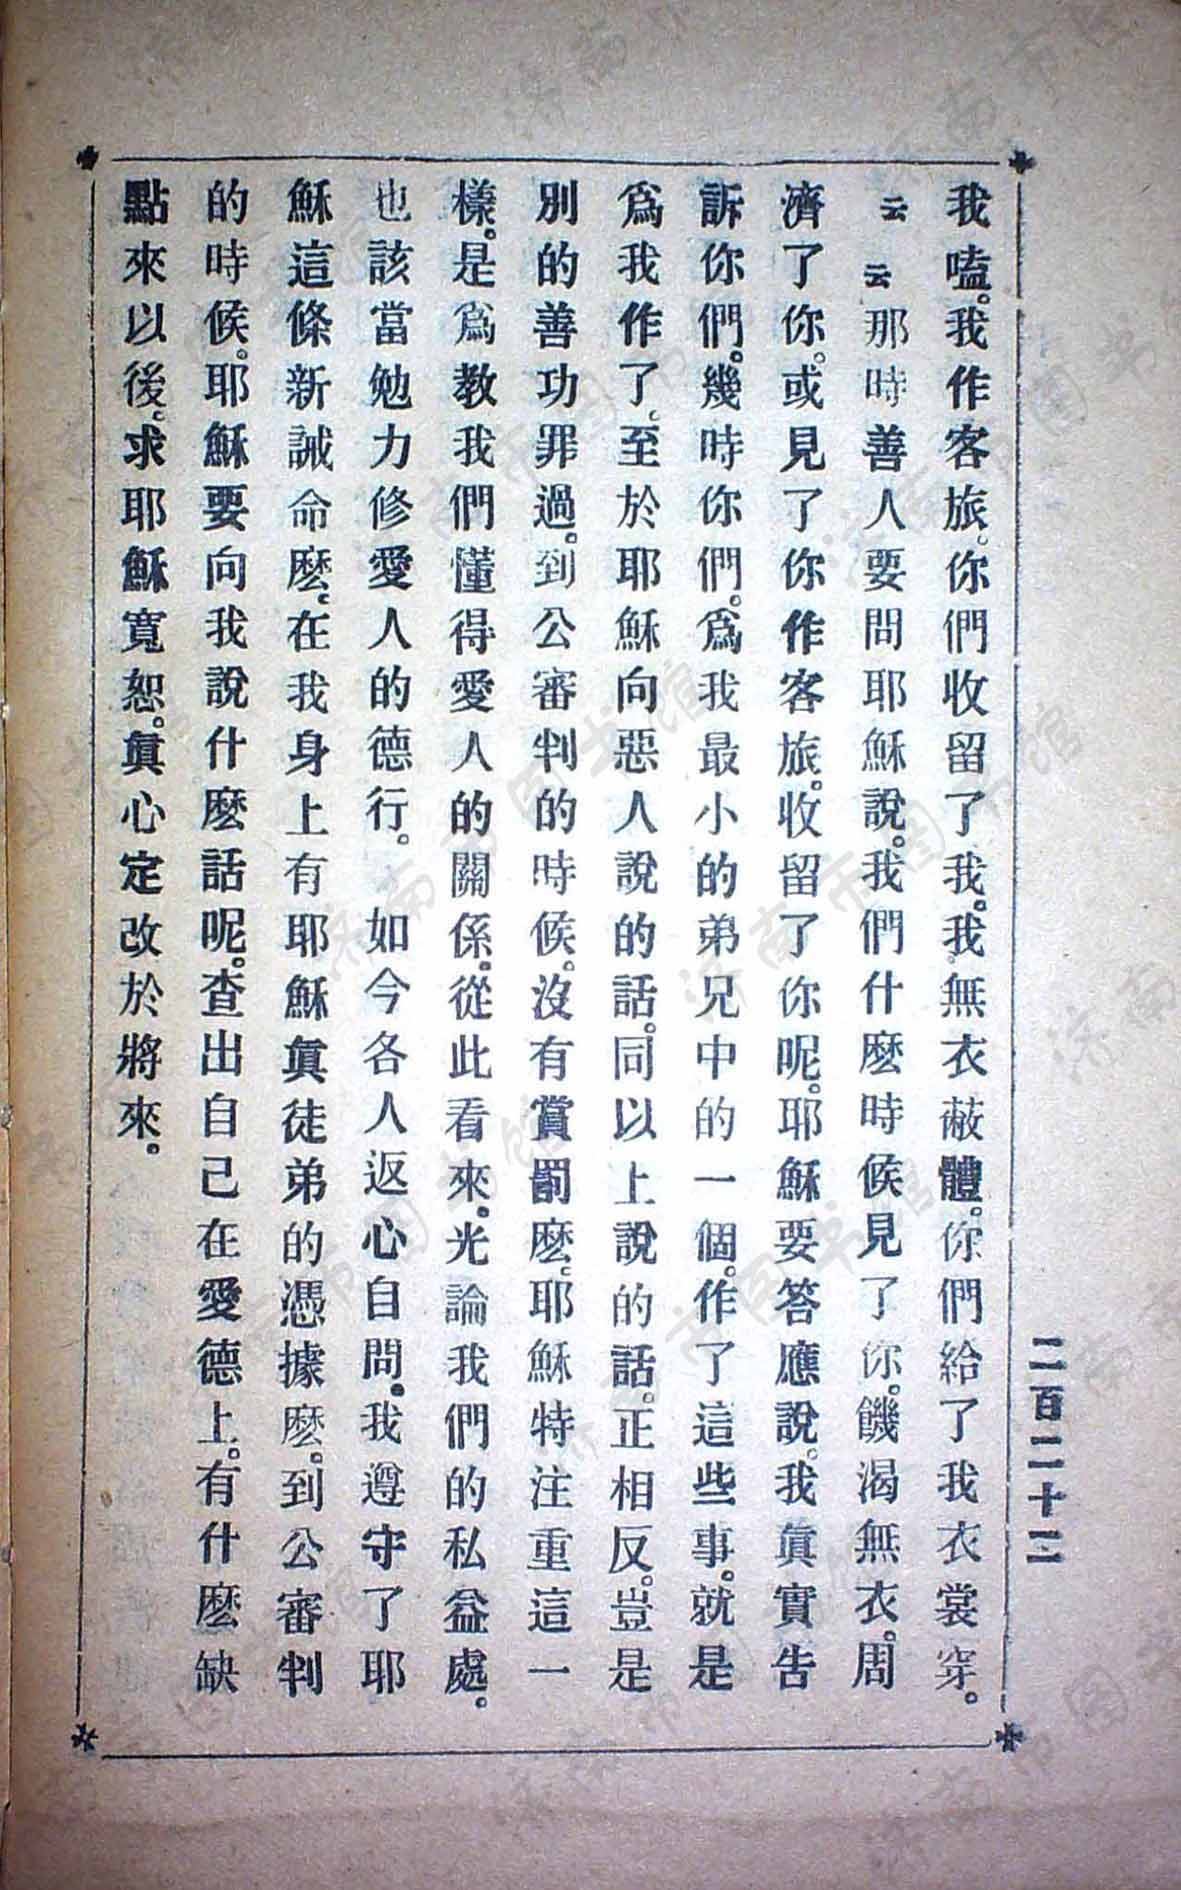 我嗑。我作客旅。你們收留了我。我無衣蔽體。你們給了我衣裳穿。
云云那時善人要問耶穌說。我們什麽時候見了你。饑渴無衣。周
濟了你。或見了你作客旅。收留了你呢。耶穌要答應說。我眞實告
訴你們。幾時你們。爲我最小的弟兄中的一個。作了這些事。就是
爲我作了。至於耶穌向惡人說的話。同以上說的話。正相反。豈是
別的善功罪過。到公審判的時候。沒有賞罰麽。耶穌特注重這一
樣。是爲教我們懂得愛人的關係。從此看來。光論我們的私益處。
也該當勉力修愛人的德行。 如今各人返心自問。我遵守了耶
穌這條新誡命麽。在我身上有耶穌眞徒弟的憑據麽。到公審判
的時候。耶穌要向我說什麽話呢。查出自己在愛德上。有什麽缺
點來以後。求耶穌寬恕。眞心定改於將來。
二百二十三
济南市图书馆